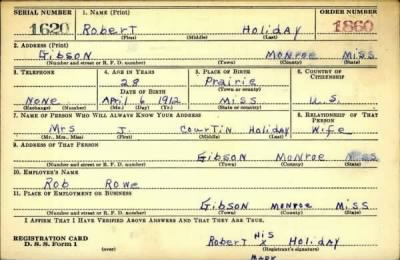 SERIAL NUMBER 1. NAME (Print) ORDER NUMBER
1620 Robert Holiday 1860
(First) (Middle) (Last)
2. ADDRESS (Print)
Gibson Monroe Miss
(Number and street or R. F. D. number) (Town) (County) (State)
3. TELEPHONE 4. AGE IN YEARS 5. PLACE OF BIRTH 6. COUNTRY OF CITIZENSHIP
28 Prairie
DATE OF BIRTH (Town or county)
None April 6 1912 Miss U.S.
(Exchange) (Number) (Mo.) (Day) (Yr.) (State or country)
7. NAME OF PERSON WHO WILL ALWAYS KNOW YOUR ADDRESS 8. RELATIONSHIP OF THAT PERSON
Mrs J. Courtin Holiday Wife
(Mr., Mrs., Miss) (First) (Middle) (Last)
9. ADDRESS OF THAT PERSON
Gibson Monroe Miss
(Number and street or R. F. D. number) (Town) (County) (State)
10. EMPLOYER'S NAME
Rob Rowe
11. PLACE OF EMPLOYMENT OR BUSINESS
Gibson Monroe Miss
(Number and street or R. F. D. number) (Town) (County) (State)
I AFFIRM THAT I HAVE VERIFIED ABOVE ANSWERS AND THAT THEY ARE TRUE.
REGISTRATION CARD his
D. S. S. Form 1 (over) Robert X Holiday
(Registrant's signature)
Mark